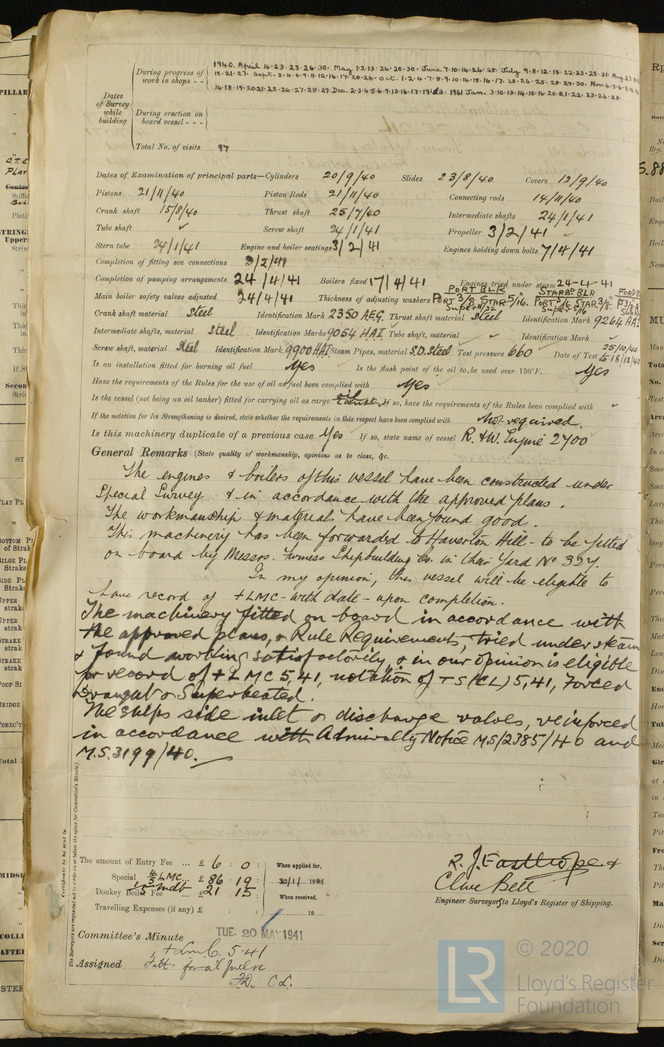 During progress of work in shops - -
1940. April 16·23·25·26·30· May 1·2·13·24·20·30· June 7·10·14·26·28· July 9·8·12·15·22·23·25·31·
Dates of Survey while building
During erection on board vessel - - -
Total No. of visits 97
Dates of Examination of principal parts—Cylinders 20/9/40 Slides 23/8/40 Covers 12/9/40
Pistons 21/11/40 Piston Rods 21/11/40 Connecting rods 14/11/40
Crank shaft 15/8/40 Thrust shaft 25/7/40 Intermediate shafts 24/1/41
Tube shaft ✓ Screw shaft 24/1/41 Propeller 3/2/41
Stern tube 24/1/41 Engine and boiler seatings 3/2/41 Engines holding down bolts 7/4/41
Completion of fitting sea connections 3/2/41
Completion of pumping arrangements 24/4/41 Boilers fixed 17/4/41 Engines tried under steam 24-4-41
Main boiler safety valves adjusted 24/4/41 Thickness of adjusting washers PORT BLR PORT 3/8 STAR 5/16. STARBD BLR PORT 5/16 STAR 3/8
Crank shaft material steel Identification Mark 2350 AEG. Thrust shaft material steel Identification Mark 9264 HAI
Intermediate shafts, material steel Identification Marks 9054 HAI Tube shaft, material ✓ Identification Mark ✓
Screw shaft, material steel Identification Mark 9900 HAI Steam Pipes, material S.D. steel Test pressure 660 Date of Test 25/10/40 to 18/12/40
Is an installation fitted for burning oil fuel Yes Is the flash point of the oil to be used over 150°F. Yes
Have the requirements of the Rules for the use of oil as fuel been complied with Yes
Is the vessel (not being an oil tanker) fitted for carrying oil as cargo If so, have the requirements of the Rules been complied with ✓
If the notation for Ice Strengthening is desired, state whether the requirements in this respect have been complied with Not required.
Is this machinery duplicate of a previous case Yes If so, state name of vessel R. & W. 2700
General Remarks (State quality of workmanship, opinions as to class, &c.
The engines & boilers of this vessel have been constructed under
Special Survey & in accordance with the approved plans.
The workmanship & materials have been found good.
This machinery has been forwarded to Haverton Hill - to be fitted
on board by Messrs. Furness Shipbuilding Co. in their Yard No 327.
In my opinion, this vessel will be eligible to
have record of +LMC - with date - upon completion.
The machinery fitted on board in accordance with
the approved plans, & Rule Requirements, tried under steam
& found working satisfactorily, & in our opinion is eligible
for record of + LMC 5,41, notation of TS (CL) 5,41, Forced
Draught & Superheated.
The ships side inlet & discharge valves, reinforced
in accordance with Admiralty Notice M.S/2385/40 and
M.S.3199/40.
The amount of Entry Fee ... £ 6 : 0 : When applied for,
Special 4/5 LMC ... £ 86 : 19 : 30/11 1941
Donkey Boiler Fee ... £ 21 : 15 : When received,
Travelling Expenses (if any) £ : : 19
R. J. Easthope &
Clive Bell
Engineer Surveyors to Lloyd's Register of Shipping.
Committee's Minute TUE. 20 MAY 1941
Assigned + LMC. 5.41
F.D. C.L.
© 2020
LR
Lloyd's Register
Foundation